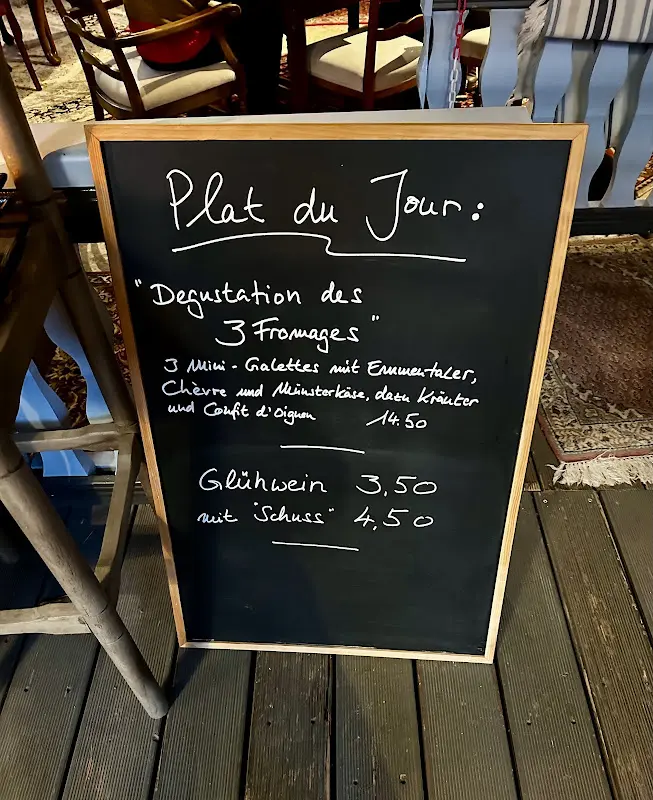 Plat du Jour:
"Degustation des
3 Fromages"
3 Mini-Galettes mit Emmentaler,
Chèvre und Münsterkäse, dazu Kräuter
und Confit d'Oignon 14.50
Glühwein 3,50
mit "Schuss" 4,50